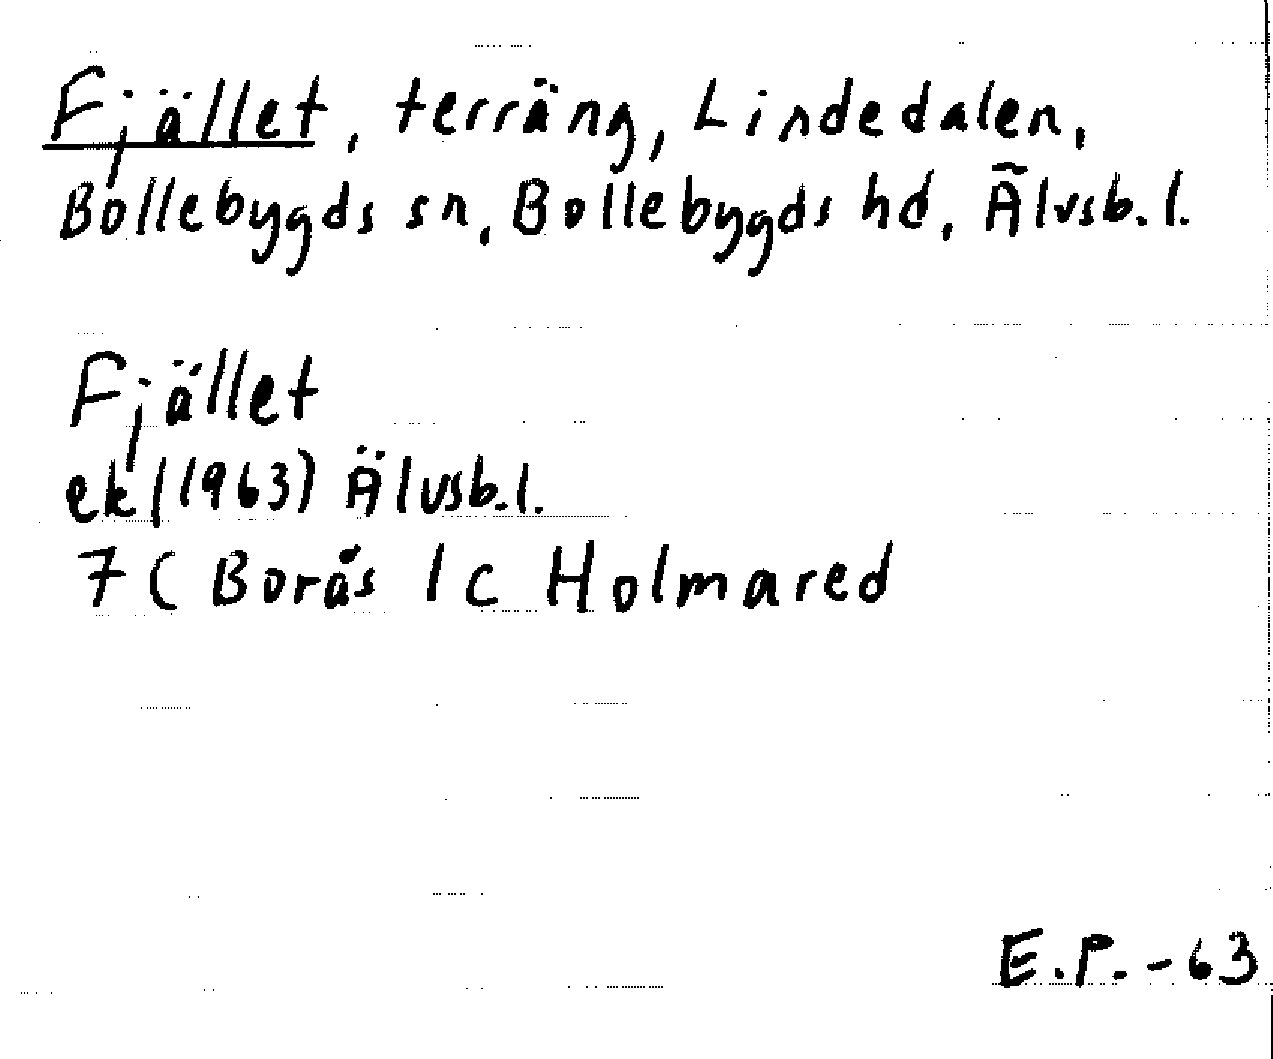 Fjället, terräng, Lindedalen,
Bollebygds sn, Bollebygds hd, Älvsb. l.
Fjället
ek (1963) Älvsb. l.
7C Borås 1c Holmared
E.P. -63